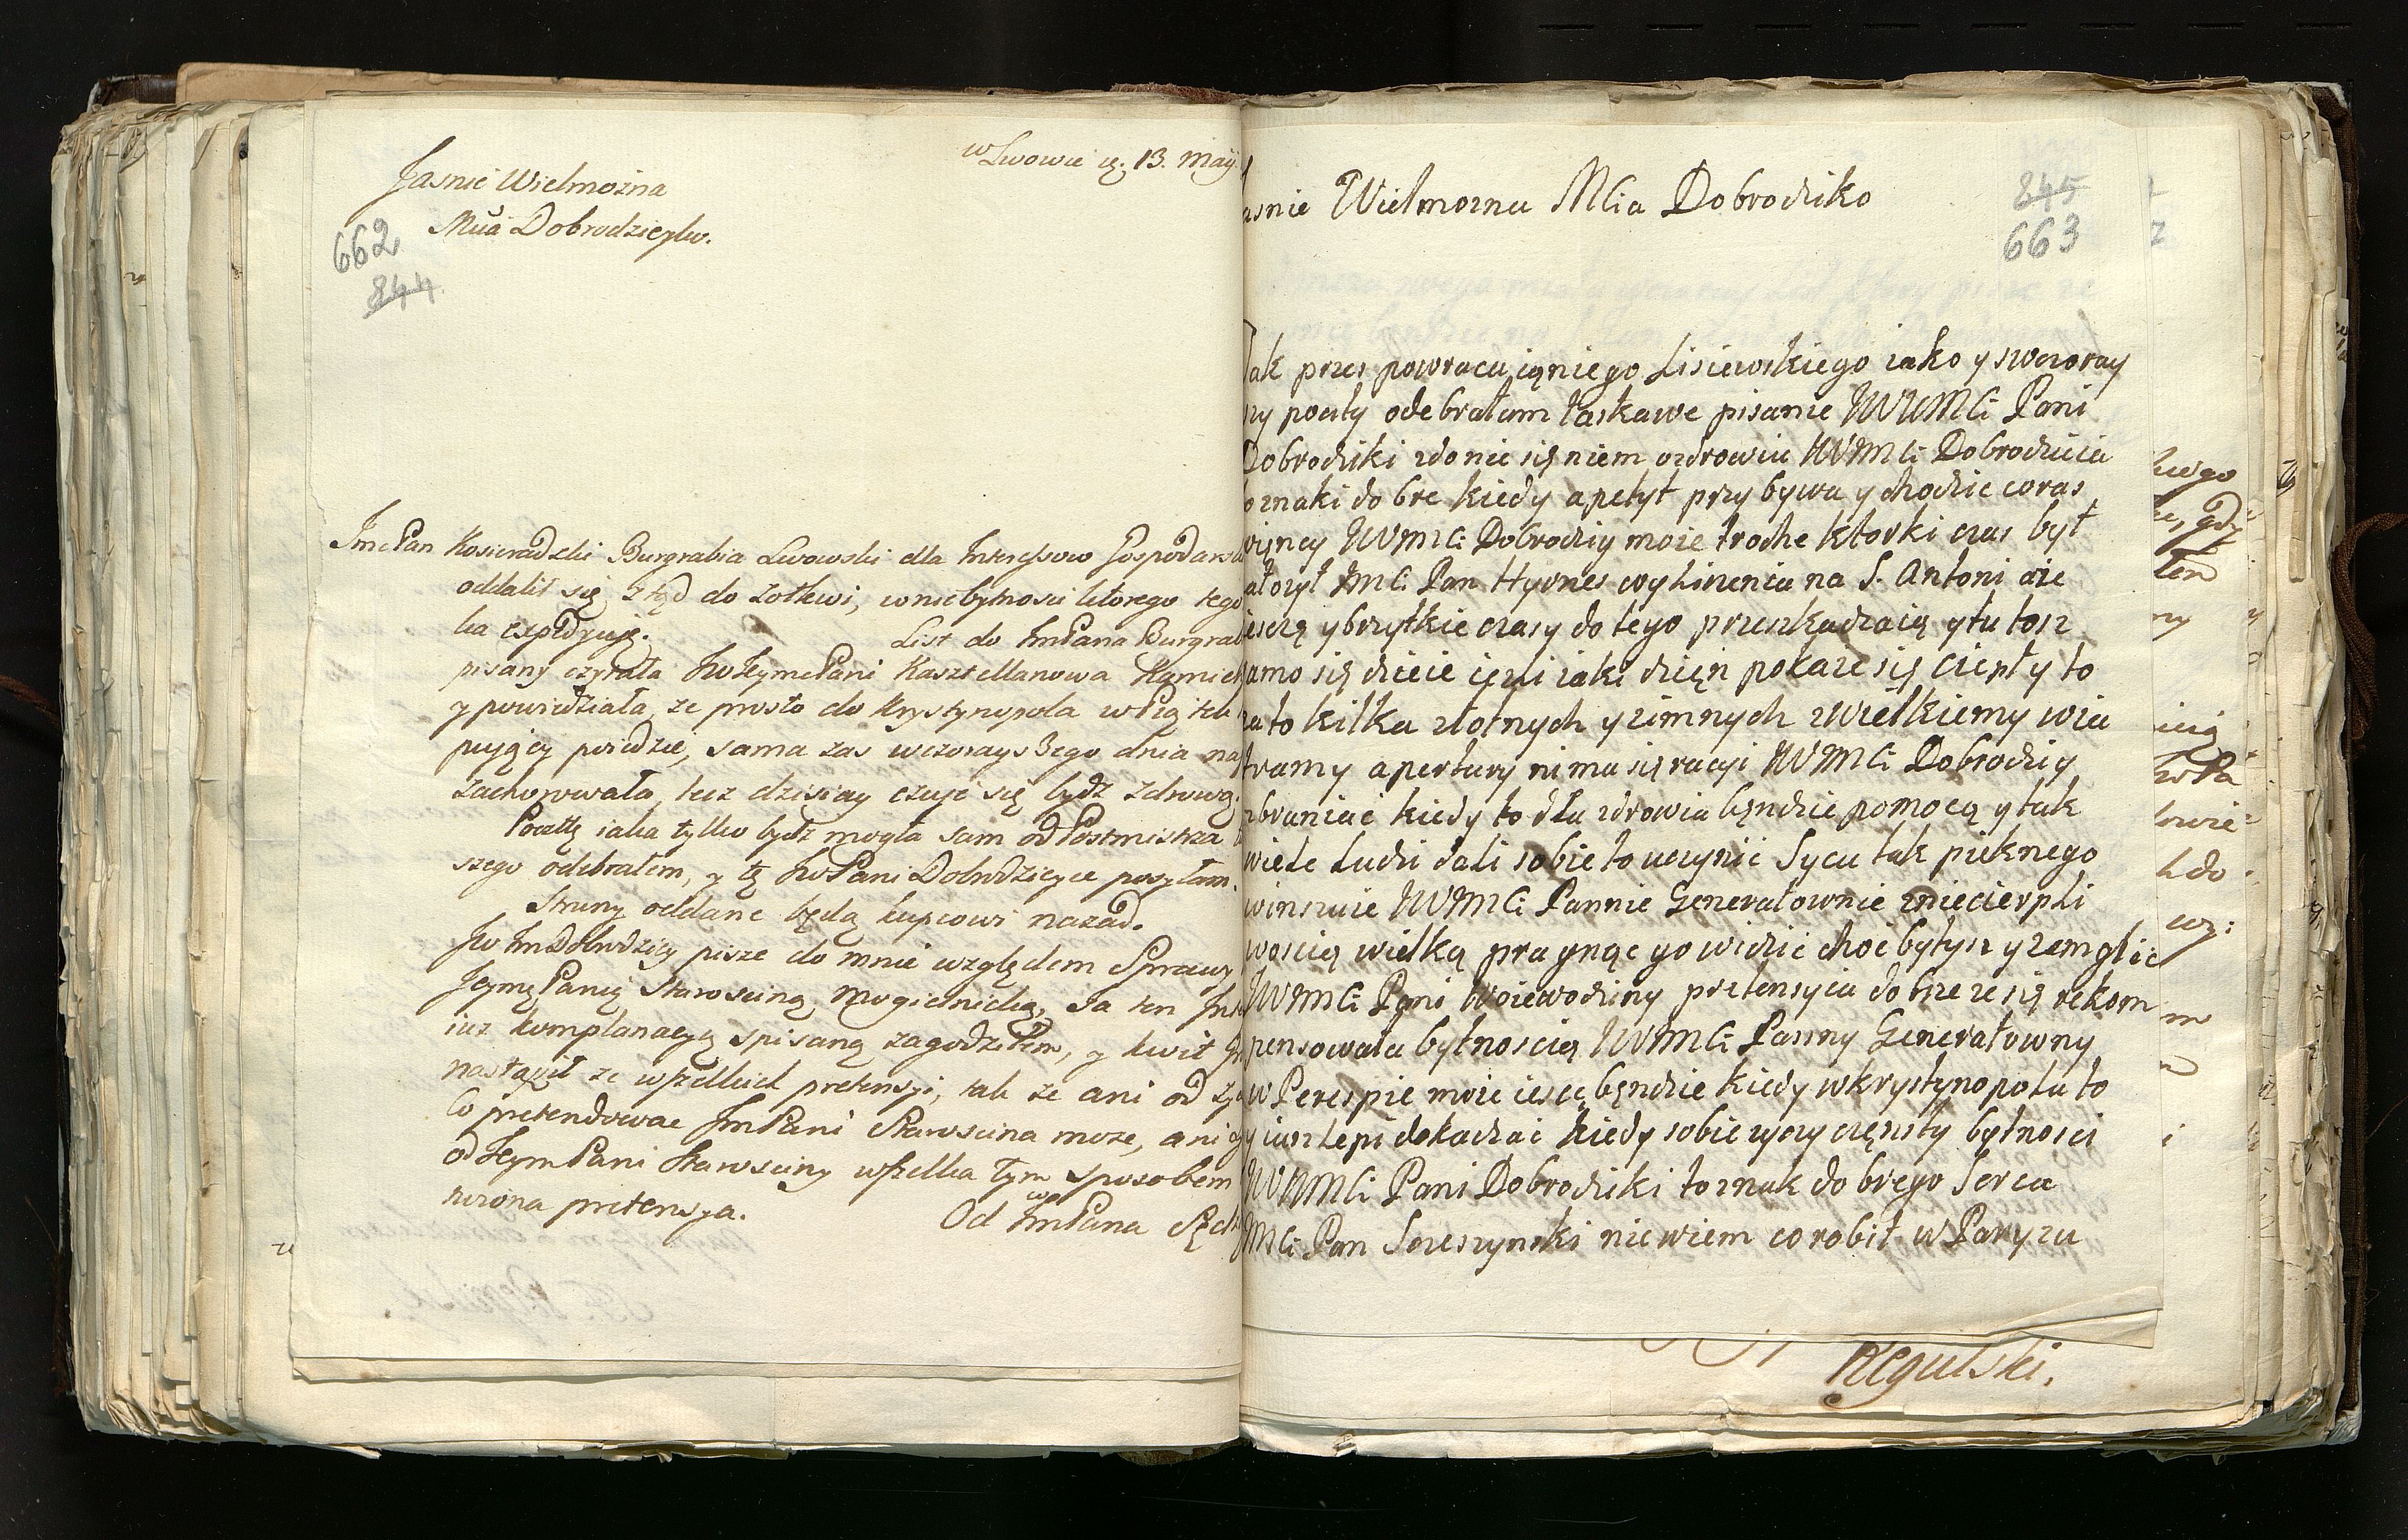 w Lwowie 13. Maij
Jasnie Wielmożna
Mcia Dobrodzieyko.
662
844
JmcPan Kosieradzki Burgrabia Lwowski dla Interessow Gospodarsk
oddalił się ztąd do Zołkwi, w niebytnosci ktorego tego
ka expedyuję. List do ImPana Burgrab
pisany czytała JwJeymcPani Kasztellanowa Kamieʼn
y powiedziała, że prosto do Krystynopola w Piątek
puiący poiedzie, sama zas wczorayszego dnia na
zachorowała, lecz dzisiay czuie się bydź zdrową.
Pocztę iaka tylko bydź mogła sam od Postmistrza
szego odebrałem, y tę JwPani Dobrodzieyce posyłam.
Struny oddane będą kupcowi nazad.
Jw ImDobrodziey pisze do mnie względem Sprawy
JeymcPanią Starosciną Mogielnicką, Ja ten Int
iuż komplanacyą spisaną zagodziłem, y kwit
nastąpił ze wszelkich pretensyi, tak że ani od
Co pretendowac JmPani Staroscina może, ani
od JeymPani Starosciny wszelka tym sposobem
rzona pretensya.
Od JwImPana
asnie Wielmozna MCia Dobrodziko
845
663
Jak przez powracaiąniego Lisiewskiego iako y swczoray
szy poczty odebrałam łaskawe pisanie WMCi Pani
Dobrodziki zdonie sięniem ozdrowiu WMCi Dobrodzieia
oznaki dobre kiedy apetyt przybywa y chodzie coraz
więncy WMCi Dobrodziy moze troche ktorki czas był
ałozył JmCi Pan Hyvnes wylineniu na S. Antoni ale
ieszczą y brzytkie czasy do tego przeszkadzaią y tu tosz
amo się dzieie iezli iaki dzięn pokaze się ciepły to
za to kilka zlotnych y zimnych zwielkiemy wia
tramy apertury nima się racyi WMCi Dobrodziy
zbraniac kiedy to dla zdrowia bęndzie pomocą y tak
wiele ludzi dali sobie to uczynic Sycu tak pieknego
winszuie WMCi Pannie Generałownie zniecierpli
woscią wielką pragnąc go widzić choc bytysz y zemglić
WMCi Pani Woiewodziny pretensyia dobrze ze się rekom
pensowała bytnoscią WMCi Panny Generałowny
w Perespie moze iescę bęndzie kiedy wkrystynopolu to
y iusz lepi dokadzac kiedy sobie zyczy częnsty bytnosci
WMCi Pani Dobrodziki to znak dobrego Serca
JMCi Pan niewiem co robił w Paryzu
Regulski.